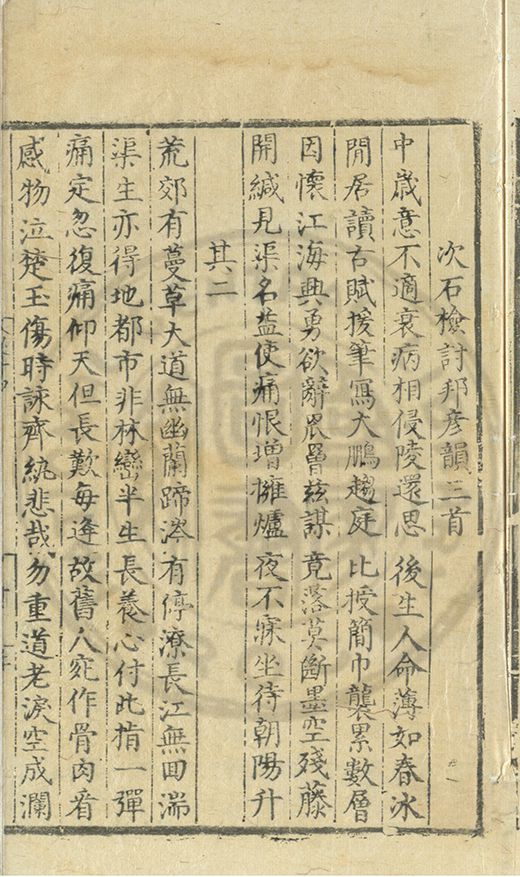 次石檢討邦彥韻三首
中歲意不適衰病相侵陵還思後生人命薄如春冰
閒居讀古賦援筆寫大鵬趨庭比授簡巾襲累數層
因懷江海興勇欲辭罾玆謀竟落莫斷墨空殘藤
開緘見渠名益使痛恨增擁爐夜不寐坐待朝陽升
其二
荒郊有蔓草大道無幽蘭蹄涔有停潦長江無囬湍
渠生亦得地都市非林巒半生長養心付此指一彈
痛定忽復痛仰天但長歎每逢故舊人宛作骨肉看
感物泣楚玉傷時詠齊紈悲哉勿重道老淚空成瀾